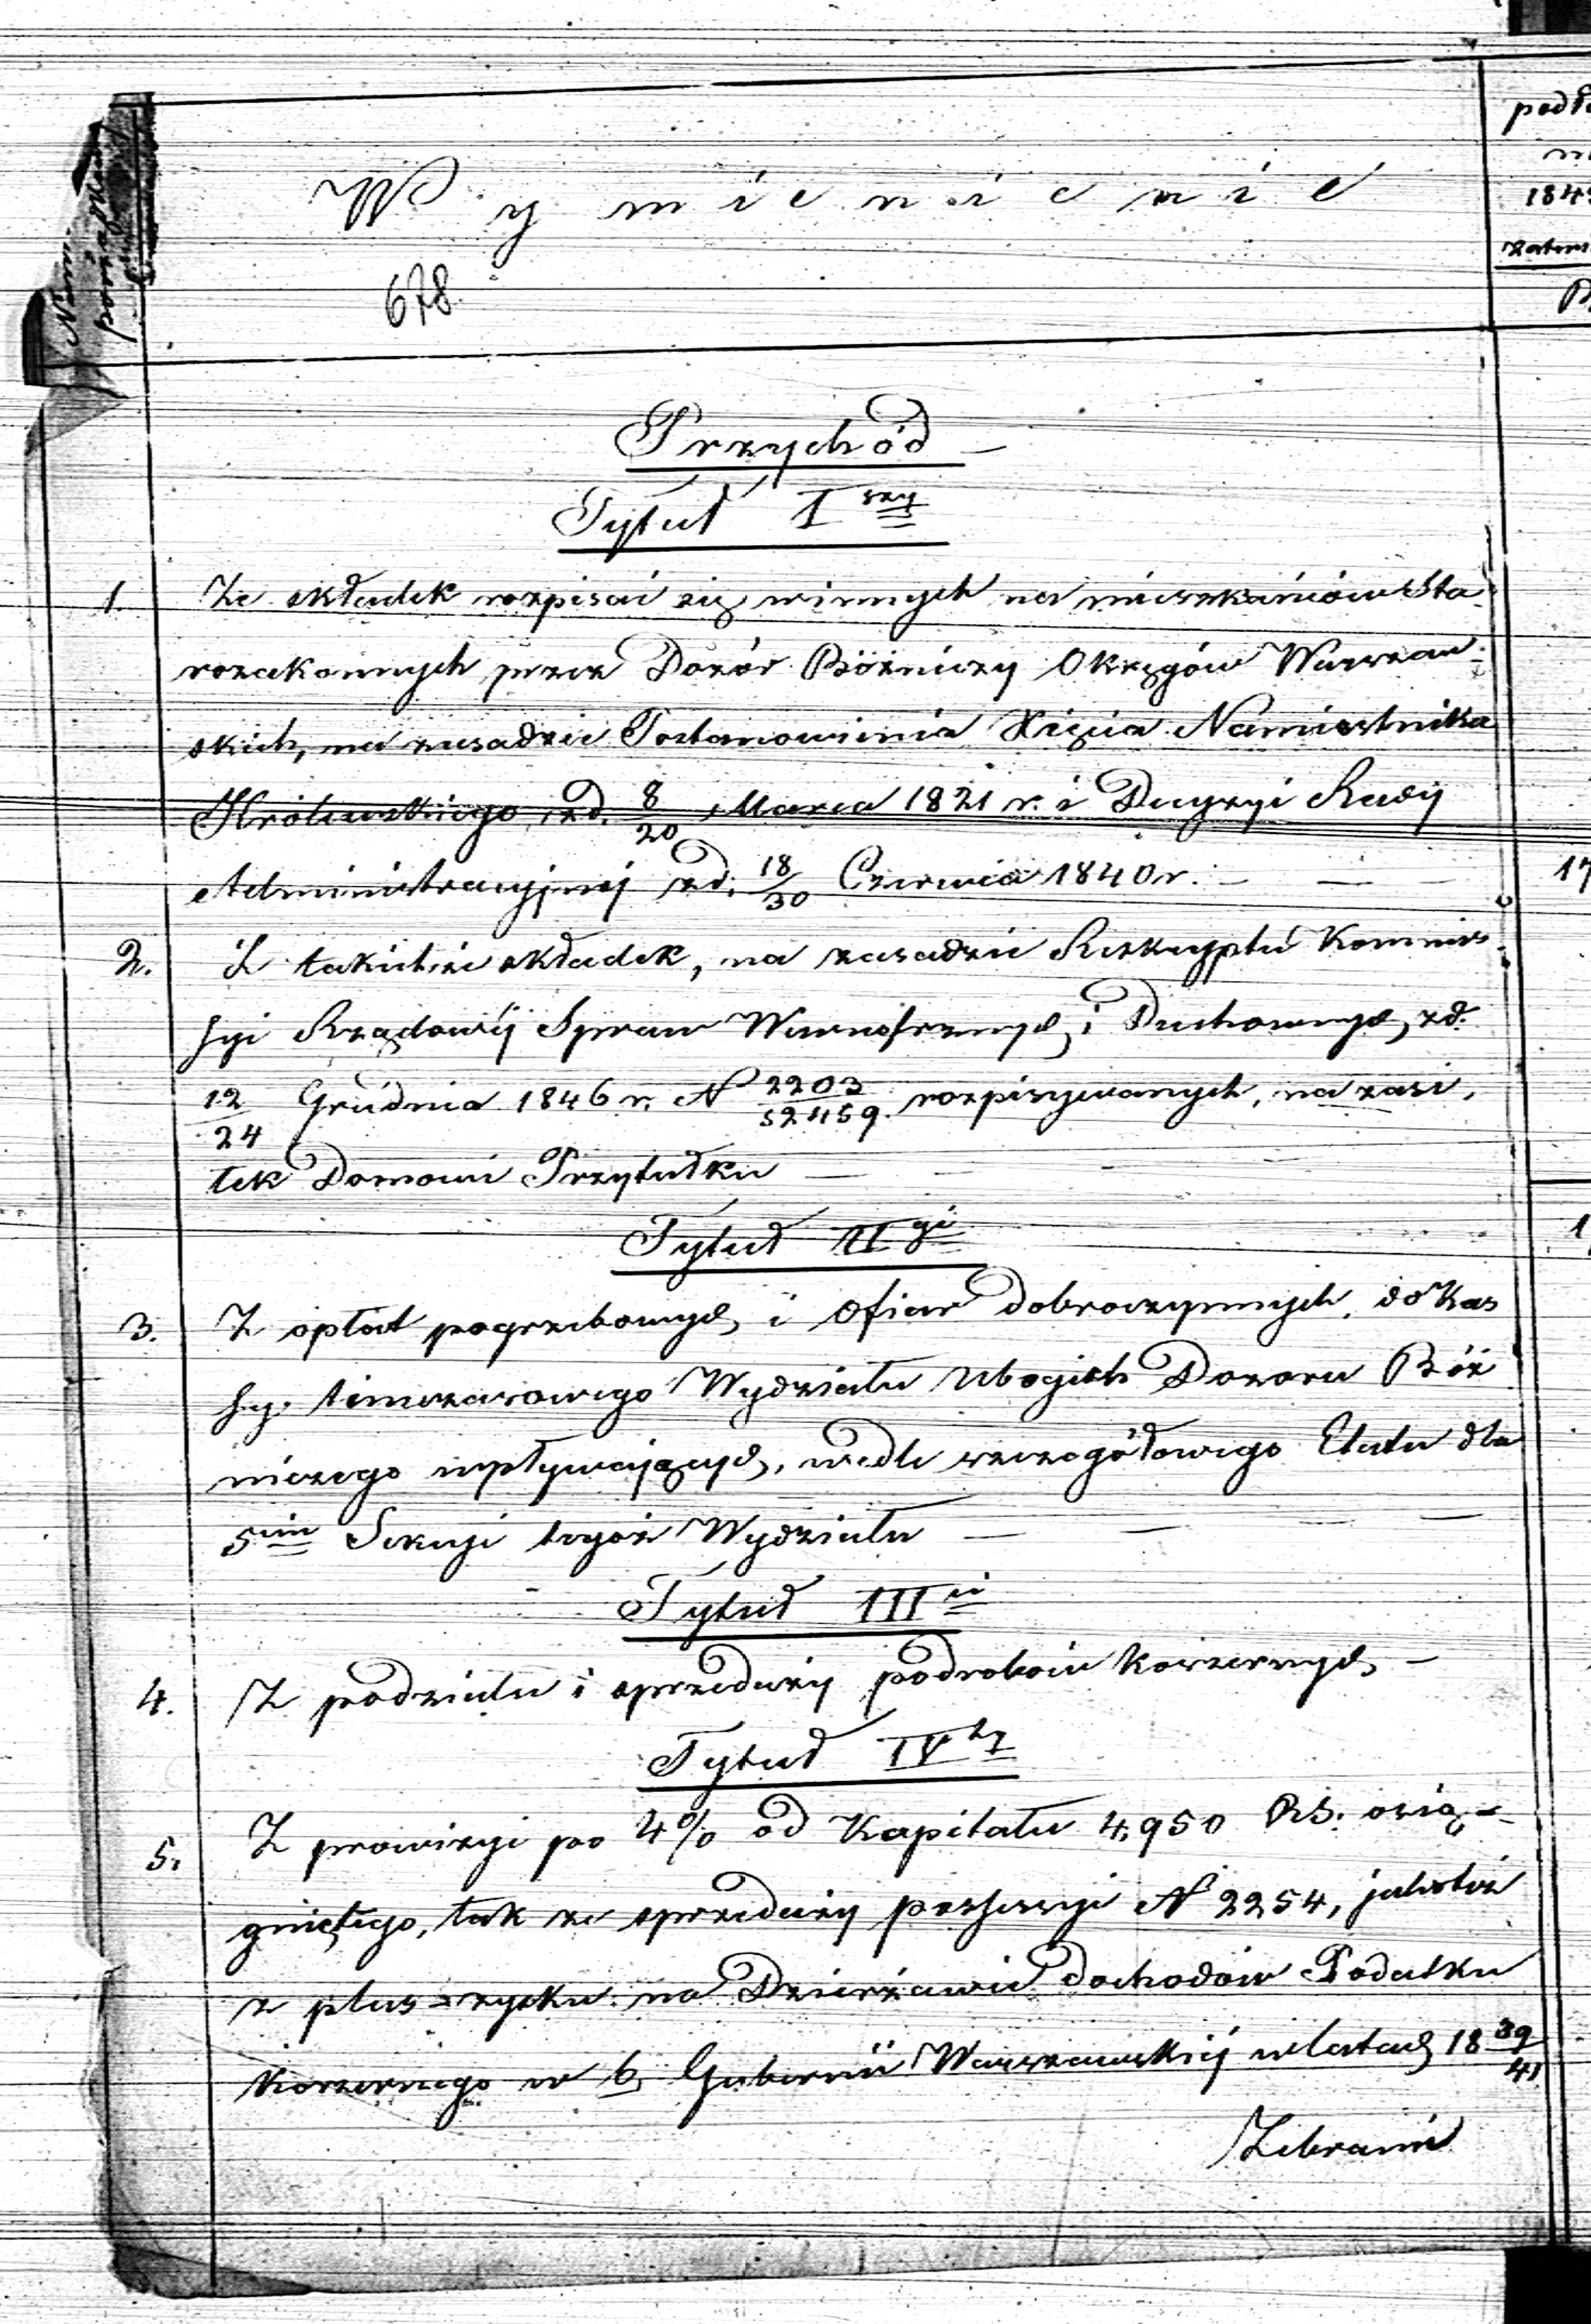 Wymienienie
678.
Przychód
Tytuł I szy
1. Ze składek rozpisać się winnych na mieszkańców Sta-
rozakonnych przez Dozór Bóżniczy Okręgów Warszaw-
skich, na zasadzie Postanowienia Xięcia Namiestnika
Królewskiego z d. 8/20 Marca 1821 r. i Decyzyi Rady
Administracyjnej z d. 18/30 Czerwca 1840 r. — — —
2. Z takichże składek, na zasadzie Reskryptu Kommis-
syi Rządowéj Spraw Wewnętrznych i Duchownych z d.
12/24 Grudnia 1846 r. N 2203/52459 rozpisywanych, na zasi-
łek Domowi Przytułku —
Tytuł II gi
3. Z opłat pogrzebowych i ofiar dobroczynnych, do Kas
sy timczasowego Wydziału Ubogich Dozoru Bóż
niczego wpływających, wedle szczegółowego Etatu dla
5ciu Sekcyi tegoż Wydziału — — — —
Tytuł III ci
4. Z podziału i sprzedaży podrobów koszernych —
Tytuł IV ty
5. Z prowizyi po 4% od Kapitału 4,950 RS. osią-
gniętego, tak ze sprzedaży possessyi N 2254, jakotéż
z plus-zysku na Dzierżawie dochodów Podatku
koszernego w b. Gubernii Warszawskiéj w latach 18 39/41
Zebranie